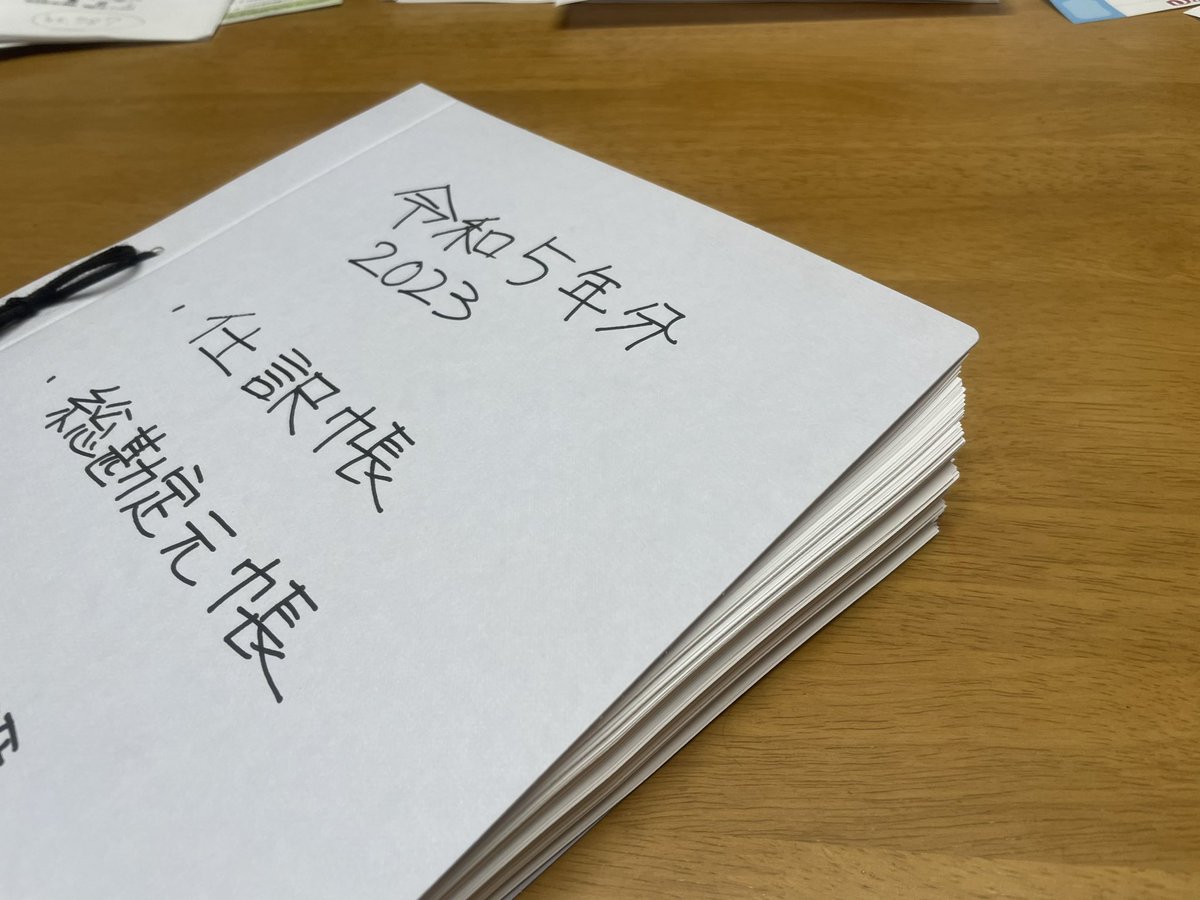 令和5年分
2023
・仕訳帳
・総勘定元帳